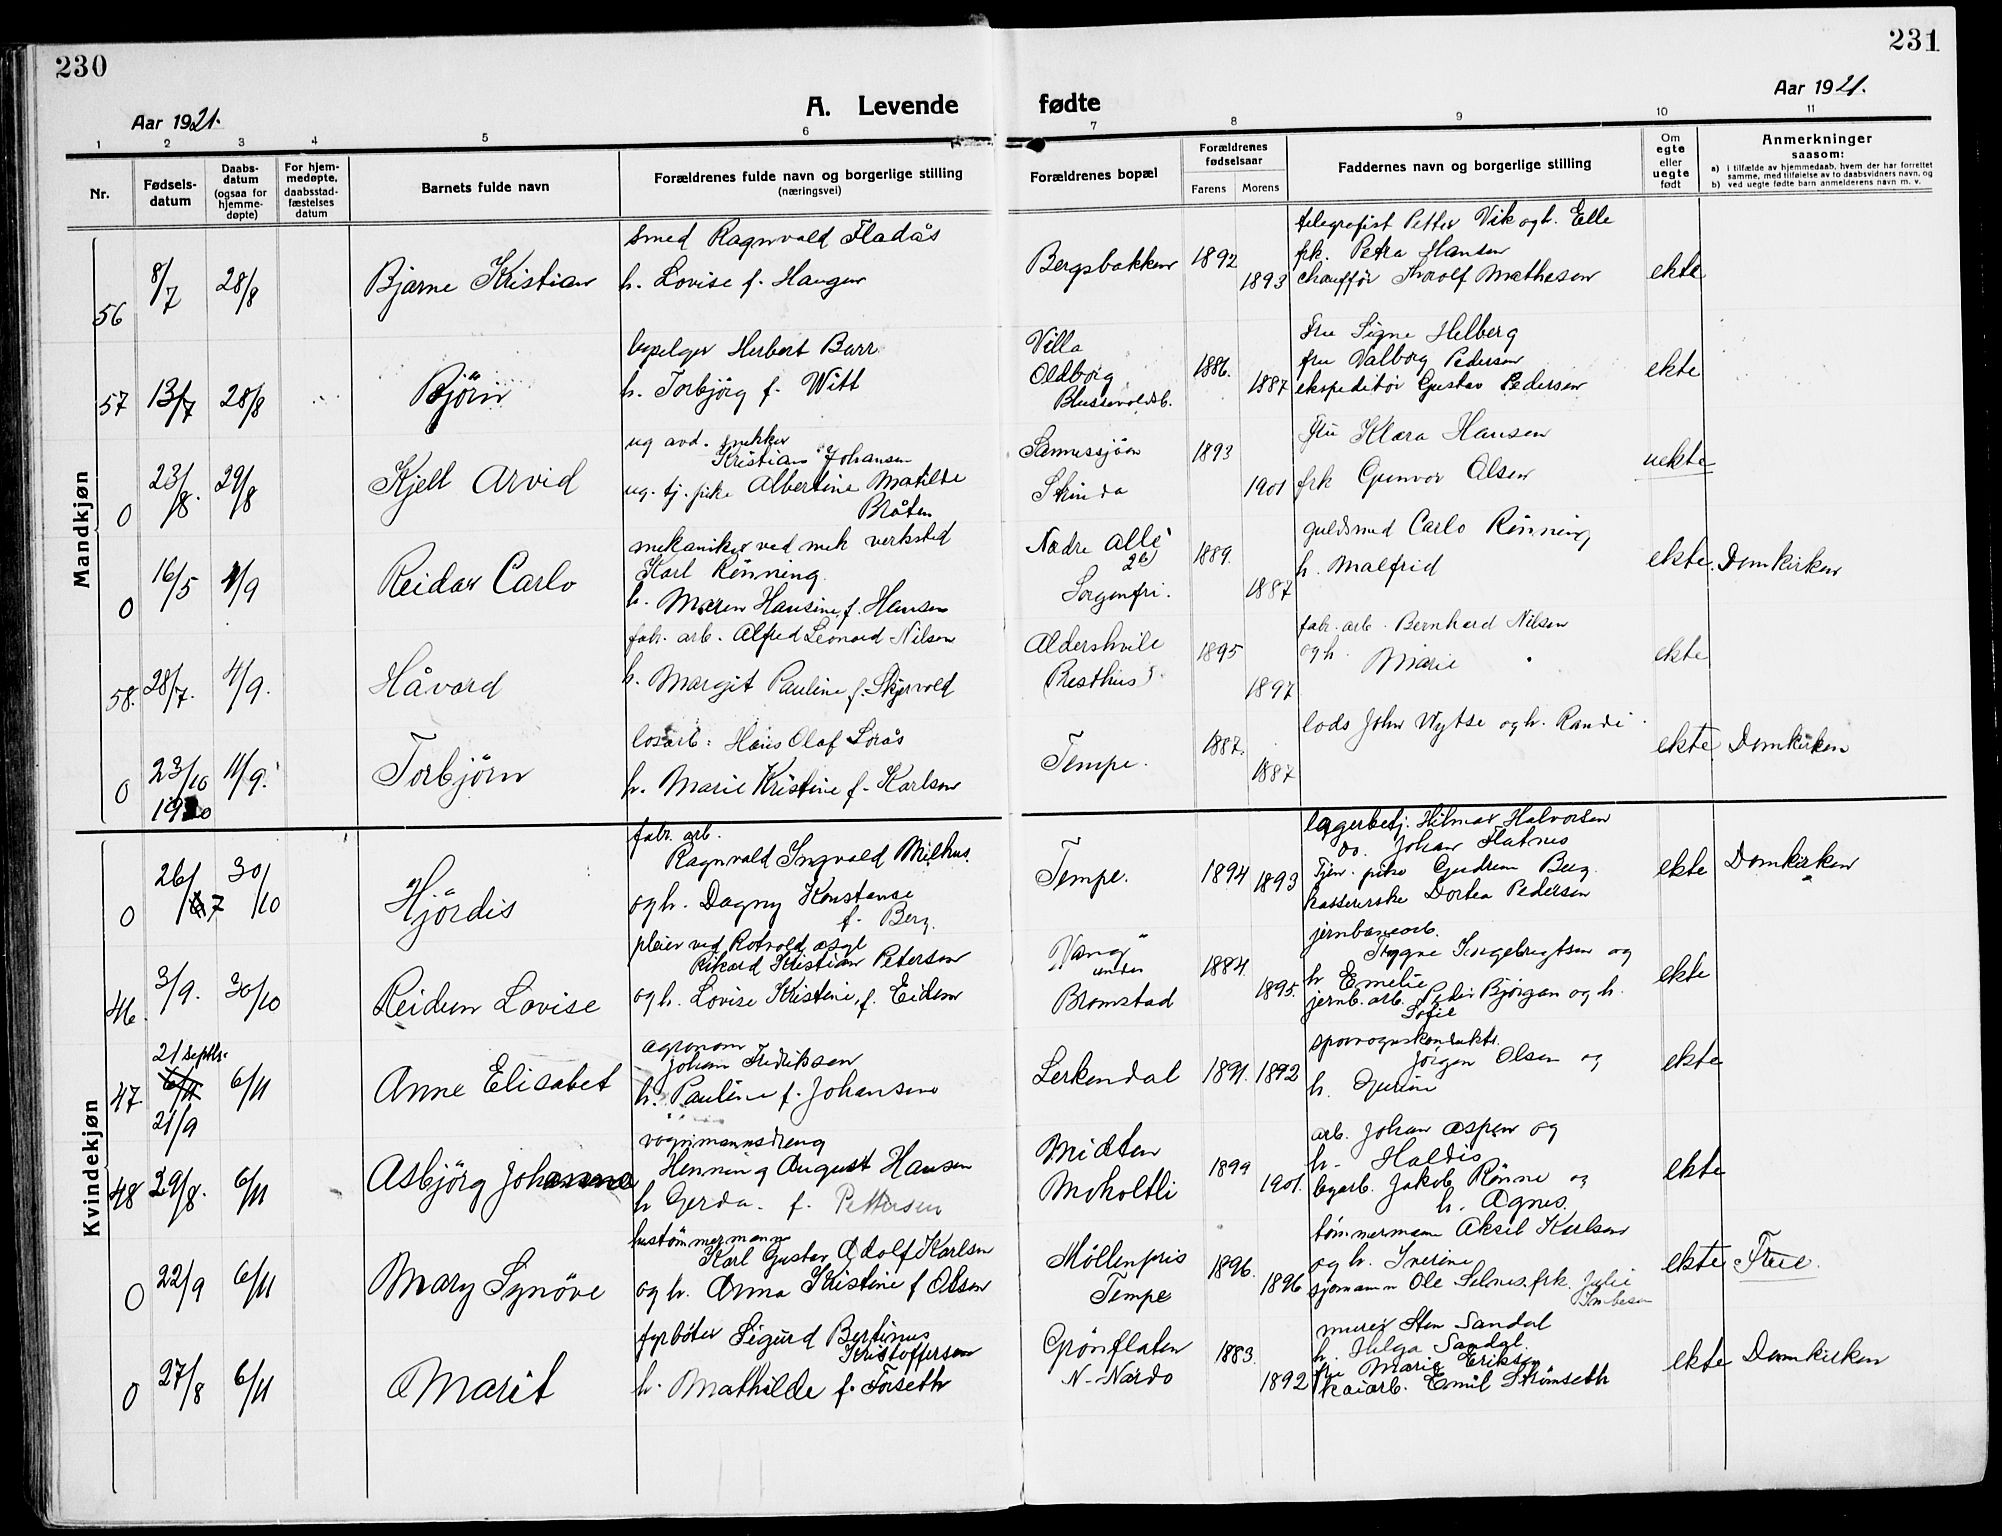 230
231
Aar 1921.
A. Levende fødte
Aar 1921.
1 2 3 4 5 6 7 8 9 10 11
Nr.
Fødsels-
datum
Daabs-
datum
(ogsaa for
hjemme-
døpte)
For hjem-
medøpte,
daabsstad-
fæstelses
datum
Barnets fulde navn
Forældrenes fulde navn og borgerlige stilling
(næringsvei)
Forældrenes bopæl
Forældrenes
fødselsaar
Farens Morens
Faddernes navn og borgerlige stilling
Om
egte
eller
uegte
født
Anmerkninger
saasom:
a) i tilfælde av hjemmedaab, hvem der har forrettet
samme, med tilføielse av to daabsvidners navn, og
b) ved uegte fødte barn anmelderens navn m. v.
Mandkjøn
56 8/7 28/8 Bjarne Kristian
smed Ragnvald Fladås
h. Lovise f. Haugen
Bergsbakken 1892 1893
telegrafist Petter Vik og h. Elle
frk. Petra Hansen
chauffør Thorolf Mathesen
ekte
57 13/7 28/8 Björn
Herbert Barr
h. Torbjörg f. Witt
Villa
Oldborg
Blussuvoldsb.
1886. 1887
Fru Signe Helberg
fru Valborg Pedersen
ekspeditör Gustav Pedersen
ekte
0 23/8. 29/8 Kjell Arvid
ug avd. snekker
Kristian Johansen
ug. tj. pike Albertine Matilde
Bråten
Sannessjöen
Strinda
1893 1901
Fru Klara Hansen
frk Gunvor Olsen
uekte
0 16/5 4/9 Reidar Carlo
mekaniker ved mek verksted
Karl Rönning.
h. Maren Hansine f. Hansen
Nedre alle
26
Sorgenfri.
1889. 1887
guldsmed Carlo Rönning
h. Malfrid
ekte. Domkirken
58. 28/7. 4/9. Håvard
fabr. arb. Alfred Leonard Nilsen
h. Margit Pauline f. Skjervold
Aldershvile
(Presthus).
1895 1897
fabr. arb. Bernhard Nilsen
og h. Marie "
ekte
0 23/10 1920 11/9. Torbjörn
losarb: Hans Olaf Lorås
h. Marie Kristine f. Karlsen
Tempe.
1887. 1887
lods John Wytse og h. Randi.
ekte Domkirken
Kvindekjøn
0 26/7 30/10 Hjördis
fabr. arb.
Ragnvald Ingvald Milhus.
og h. Dagny Konstanse
f. Berg.
Tempe.
1894 1893
lagerbetj. Hilmar Halvorsen
do. Johan Flatnes
Tjen. pike Gudrun Berg.
kassererske Dortea Pedersen
ekte Domkirken
46. 3/9. 30/10 Reidun Lovise
pleier ved Rotvold asyl
Rikard Kristian Petersen
og h. Lovise Kristine, f. Eidem
"Vang"
under
Bromstad
1884. 1895.
jernbanearb.
Trygne Ingebregtsen og
h Emelie
jernb. arb. Peder Björgan og h.
Sofie
ekte
47 21 septbr. 6/11 21/9 6/11 Anne Elisabet
agronom
Johan Fredriksen
h. Pauline f. Johansen
Lerkendal 1891. 1892
sporvognskonduktr.
Jörgen Olsen og
h. Gurine
ekte
48 29/8. 6/11 Asbjörg Johanna
vognmannsdreng
Henning August Hansen
h Gerda. f. Pettersen
Midten
Moholtli
1899 1901.
arb. Johan Aspen og
h. Haldis
Jakob Rönne og
h. Agnes.
ekte
0 22/9 6/11 Mary Synöve
hustömmermann
Karl Gustav Adolf Karlsen
og h. Anna Kristine f Olsen
Möllenpris
Tempe
1896. 1896
tömmermann Aksel Karlsen
og h. Inerine
sjömann Ole Selnes, frk. Julie
ekte Frue.
0 27/8 6/11 Marit
fyrböter Sigurd Bertinus
Kristoffersen
h. Mathilde f. Forseth
Grönflaten
N-Nardo
1883. 1892
murer Sten Sandal
h. Helga Sandal.
fru Marie Eriksen
kaiarb. Emil Strömseth
ekte Domkirken